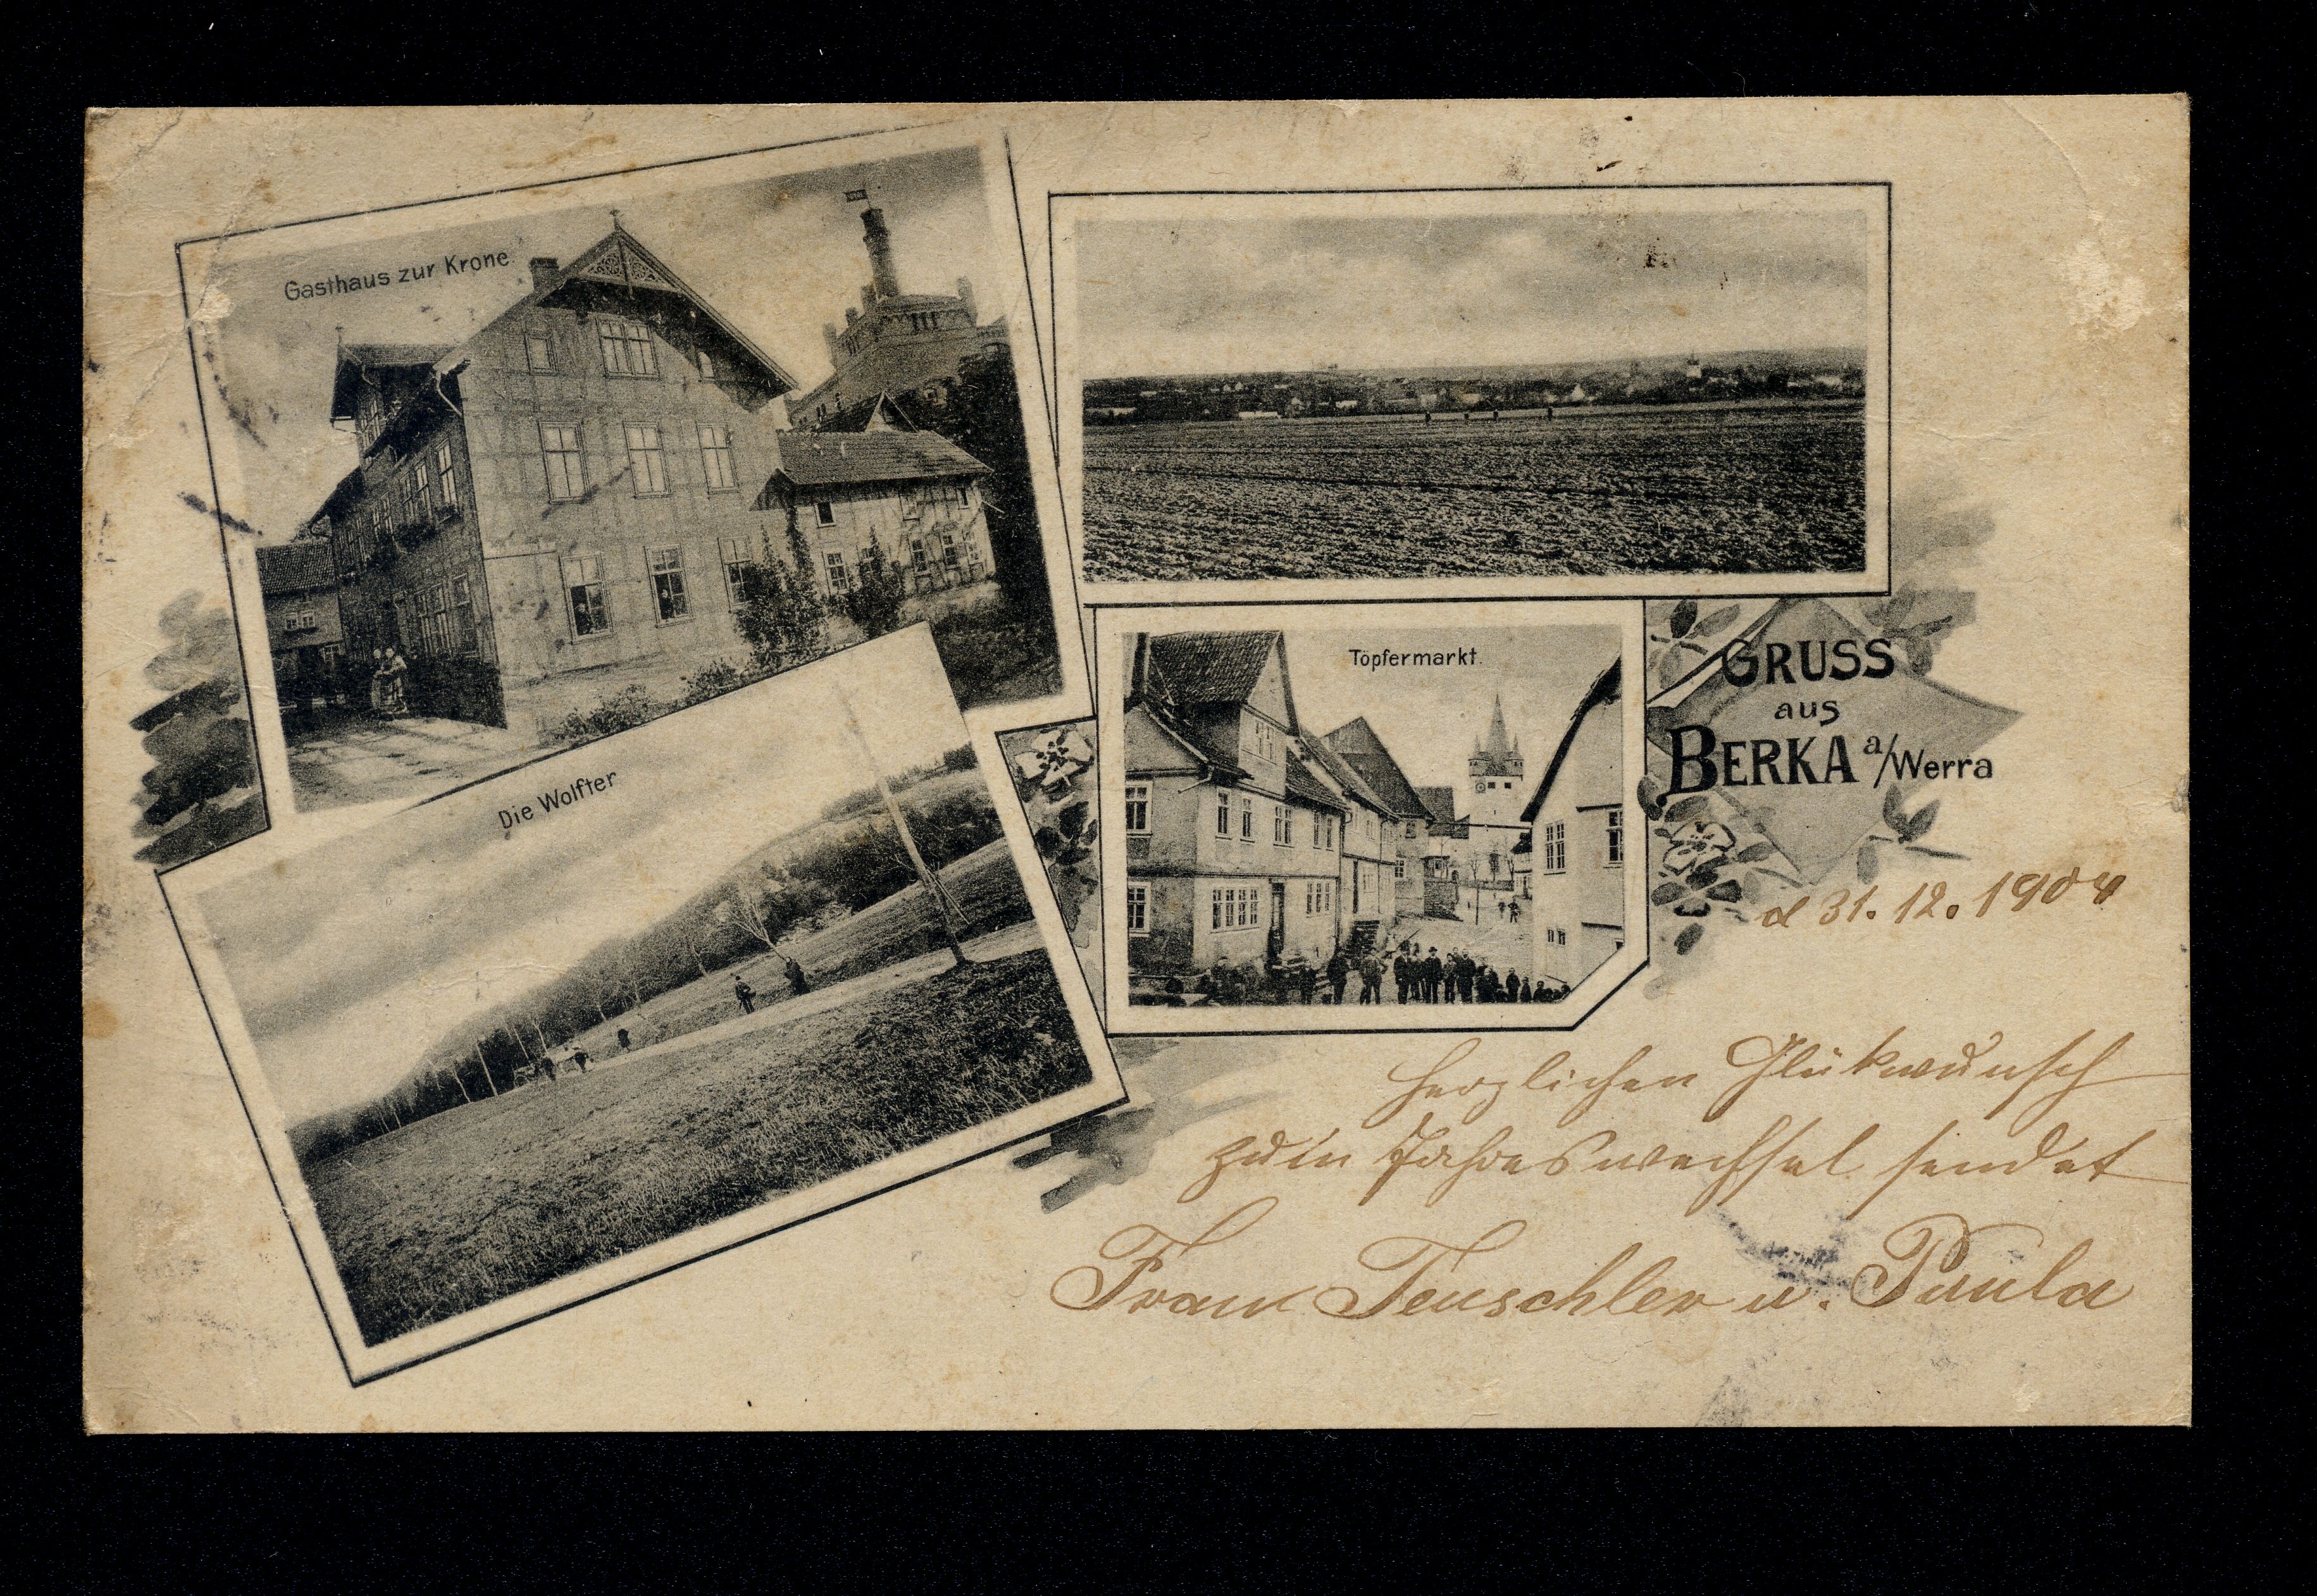 Gasthaus zur Krone.
Die Wolfter
Töpfermarkt.
GRUSS
aus
BERKA a/Werra
d 31.12.1904
Herzlichen Glükwunsch
zum Jahreswechsel sendet
Frau Teuschler u. Paula